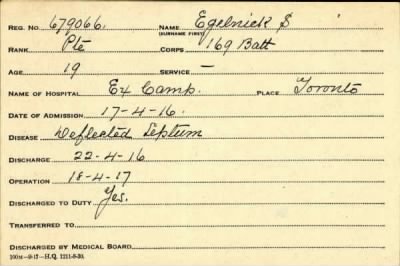 REG. NO. 679066. NAME Egelnick S
(SURNAME FIRST)
RANK Pte CORPS 169 Batt
AGE 19 SERVICE —
NAME OF HOSPITAL Ex Camp. PLACE Toronto
DATE OF ADMISSION 17-4-16.
DISEASE Deflected Septum
DISCHARGE 22-4-16
OPERATION 18-4-17
DISCHARGED TO DUTY Yes.
TRANSFERRED TO
DISCHARGED BY MEDICAL BOARD
200M—9-17—H.Q. 1211-8-30.